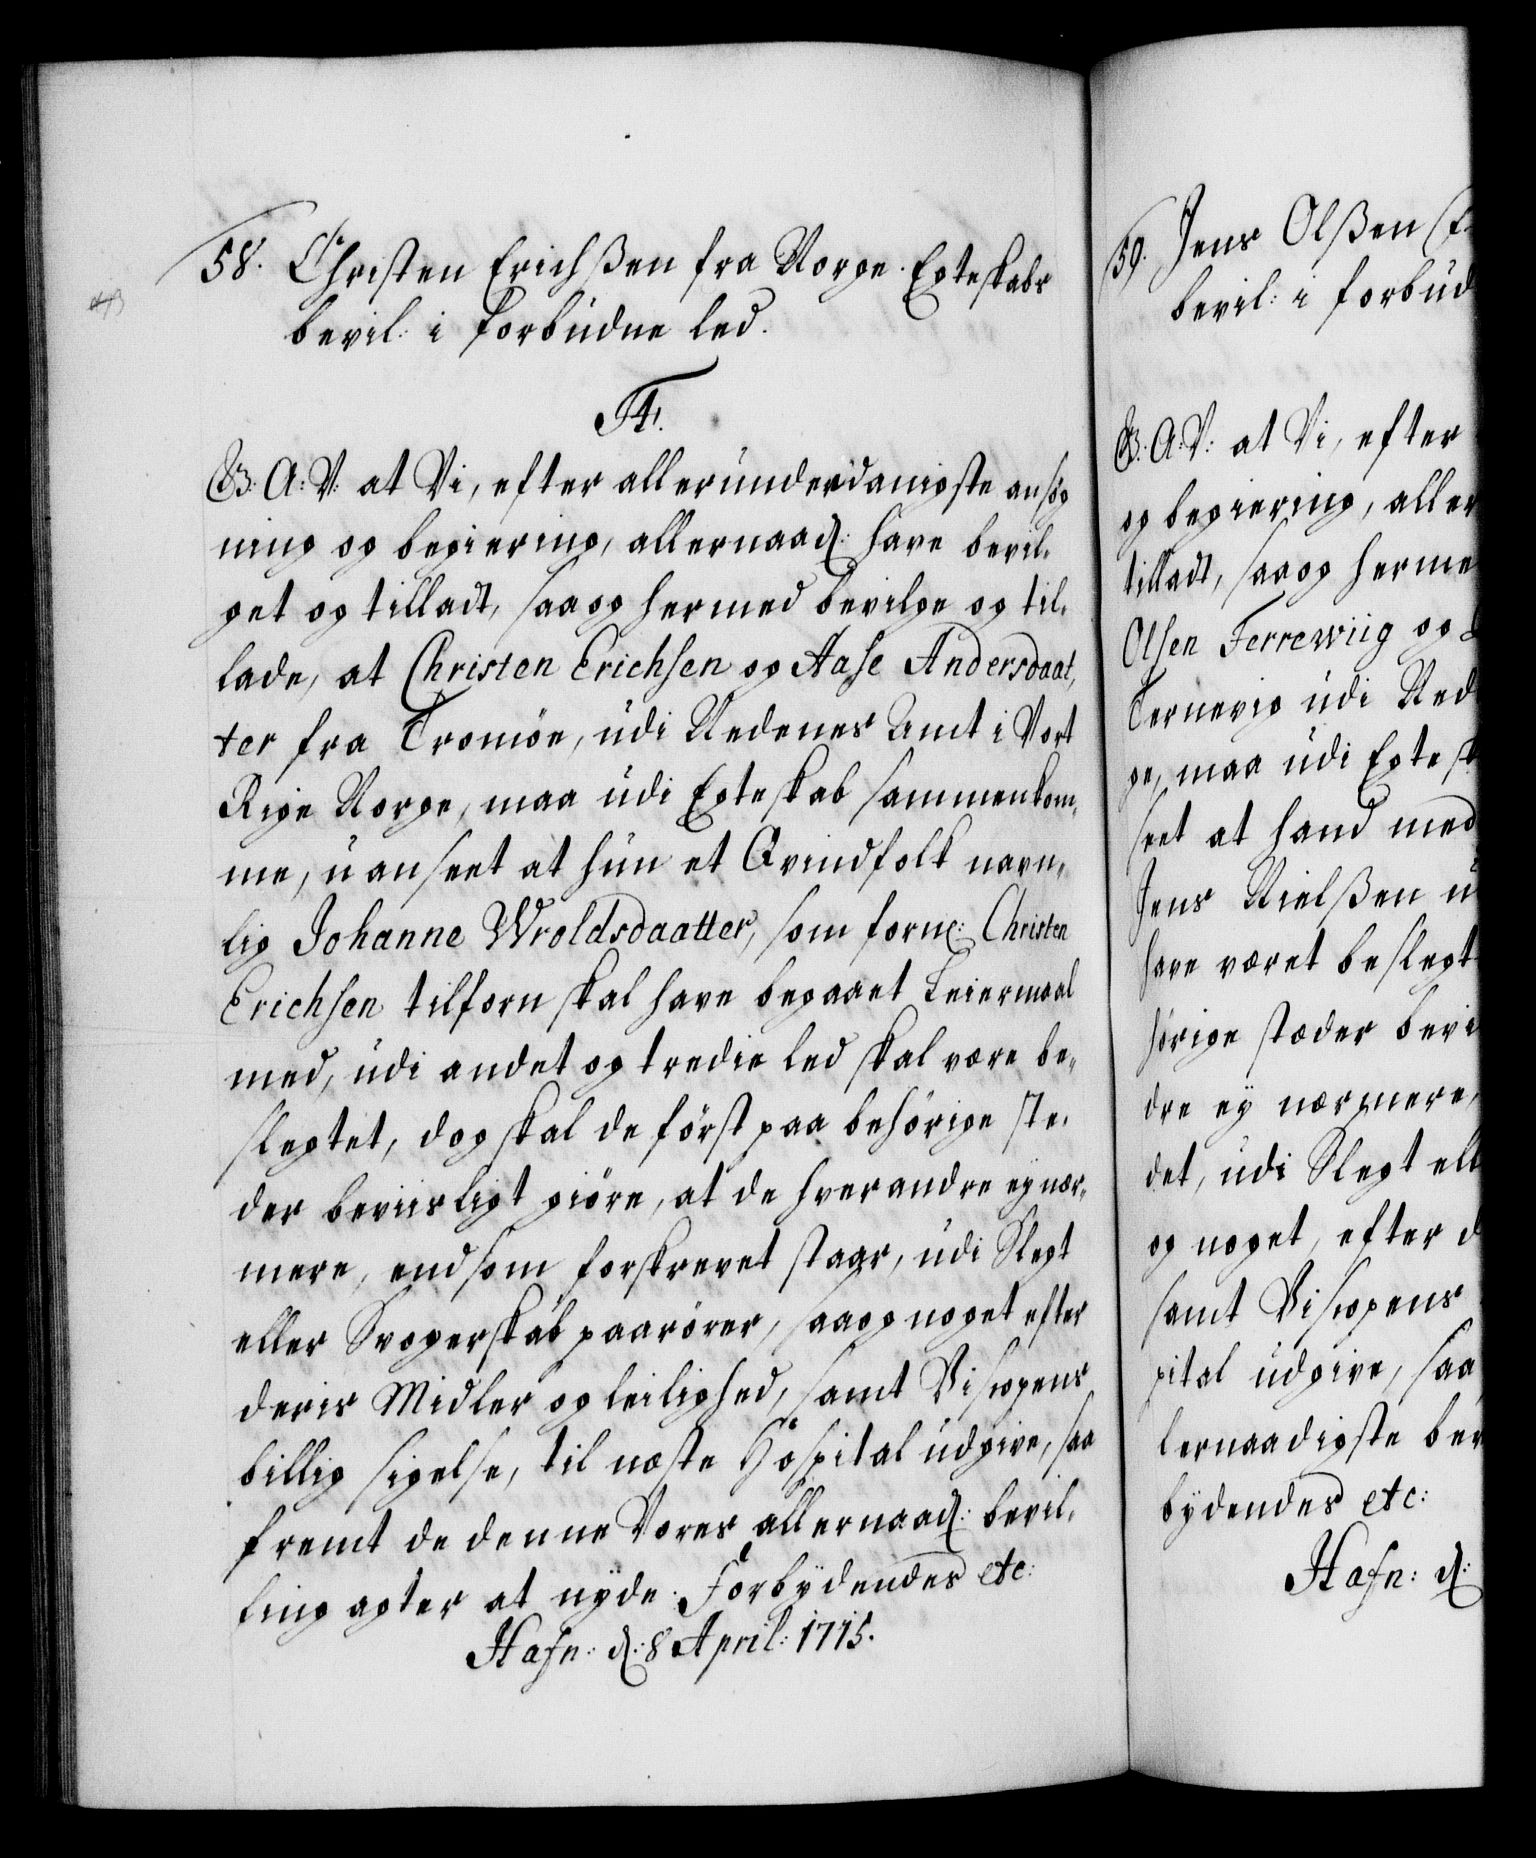 58. Christen Erichßen fra Norge Egteskabs
bevil: i forbudne led.
F4.
G. A: V: at Vi, efter allerunderdanigste ansøg
ning og begiering, allernaad: have bevil,
get og tilladt, saa og hermed bevilge og til,
lade, at Christen Erichsen og Aase Andersdaat,
ter fra Tromøe, udi Nedenes Amt i Vort
Rige Norge, maa udi Egteskab sammenkom,
me, uanseet at hun et Qvindfolk navn,
lig Johanne Wroldsdaatter, som forn: Christen
Erichsen tilforn skal have begaaet Leiermaal
med, udi andet og tredie led skal være be,
slegtet, dog skal de først paa behørige ste,
der beviisligt giøre, at de hverandre ey nær,
mere, end som forskrevet staar, udi Slegt
eller Svogerskab paarører, saa og noget efter
deris Midler og leilighed, samt Biscopens
billig sigelse, til næste Hospital udgive, saa
fremt de denne Vores allernaad: bevil,
ling agter at nyde. Forbydendes etc:
Hafn: d: 8 April: 1715.
59. Jens Olßen
bevil: i forbud
G. A: V: at Vi, efter
og begiering, aller
tilladt, saa og herme
Olsen Ferrewiig og
Ternevig udi Ned
ge, maa udi Egtesk
seet at hand med
Jens Nielßen
have været beslegt
hørige stæder bevi
dre ey nærmere,
det, udi Slegt ell
og noget, efter d
samt Biscopens
pital udgive, saa
lernaadigste bev
bydendes etc:
Hafn: d: